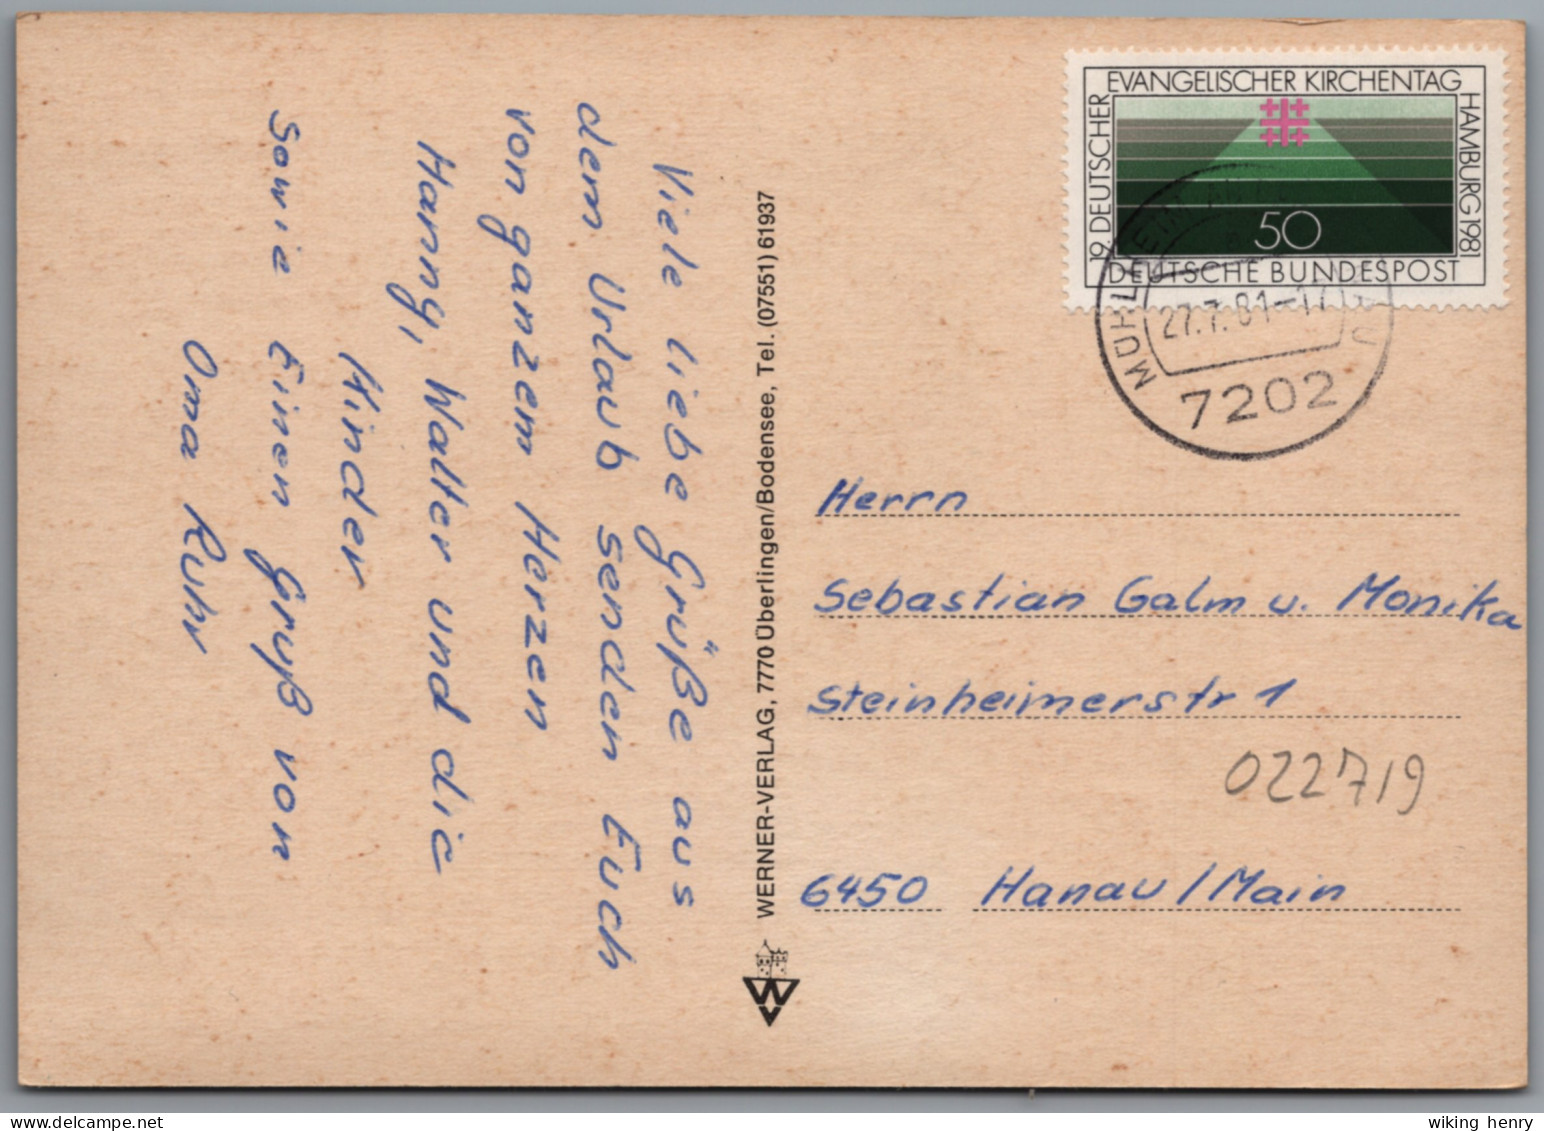 Viele liebe Grüße aus
dem Urlaub senden Euch
von ganzem Herzen
Hanny, Walter und die
Kinder
sowie Einen Gruß von
Oma Ruhr
WERNER-VERLAG, 7770 Überlingen/Bodensee, Tel. (07551) 61937
W
19. DEUTSCHER EVANGELISCHER KIRCHENTAG HAMBURG 1981
50
DEUTSCHE BUNDESPOST
27.7.81-17
7202
Herrn
Sebastian Galm u. Monika
Steinheimerstr 1
022719
6450 Hanau/Main
wiking henry